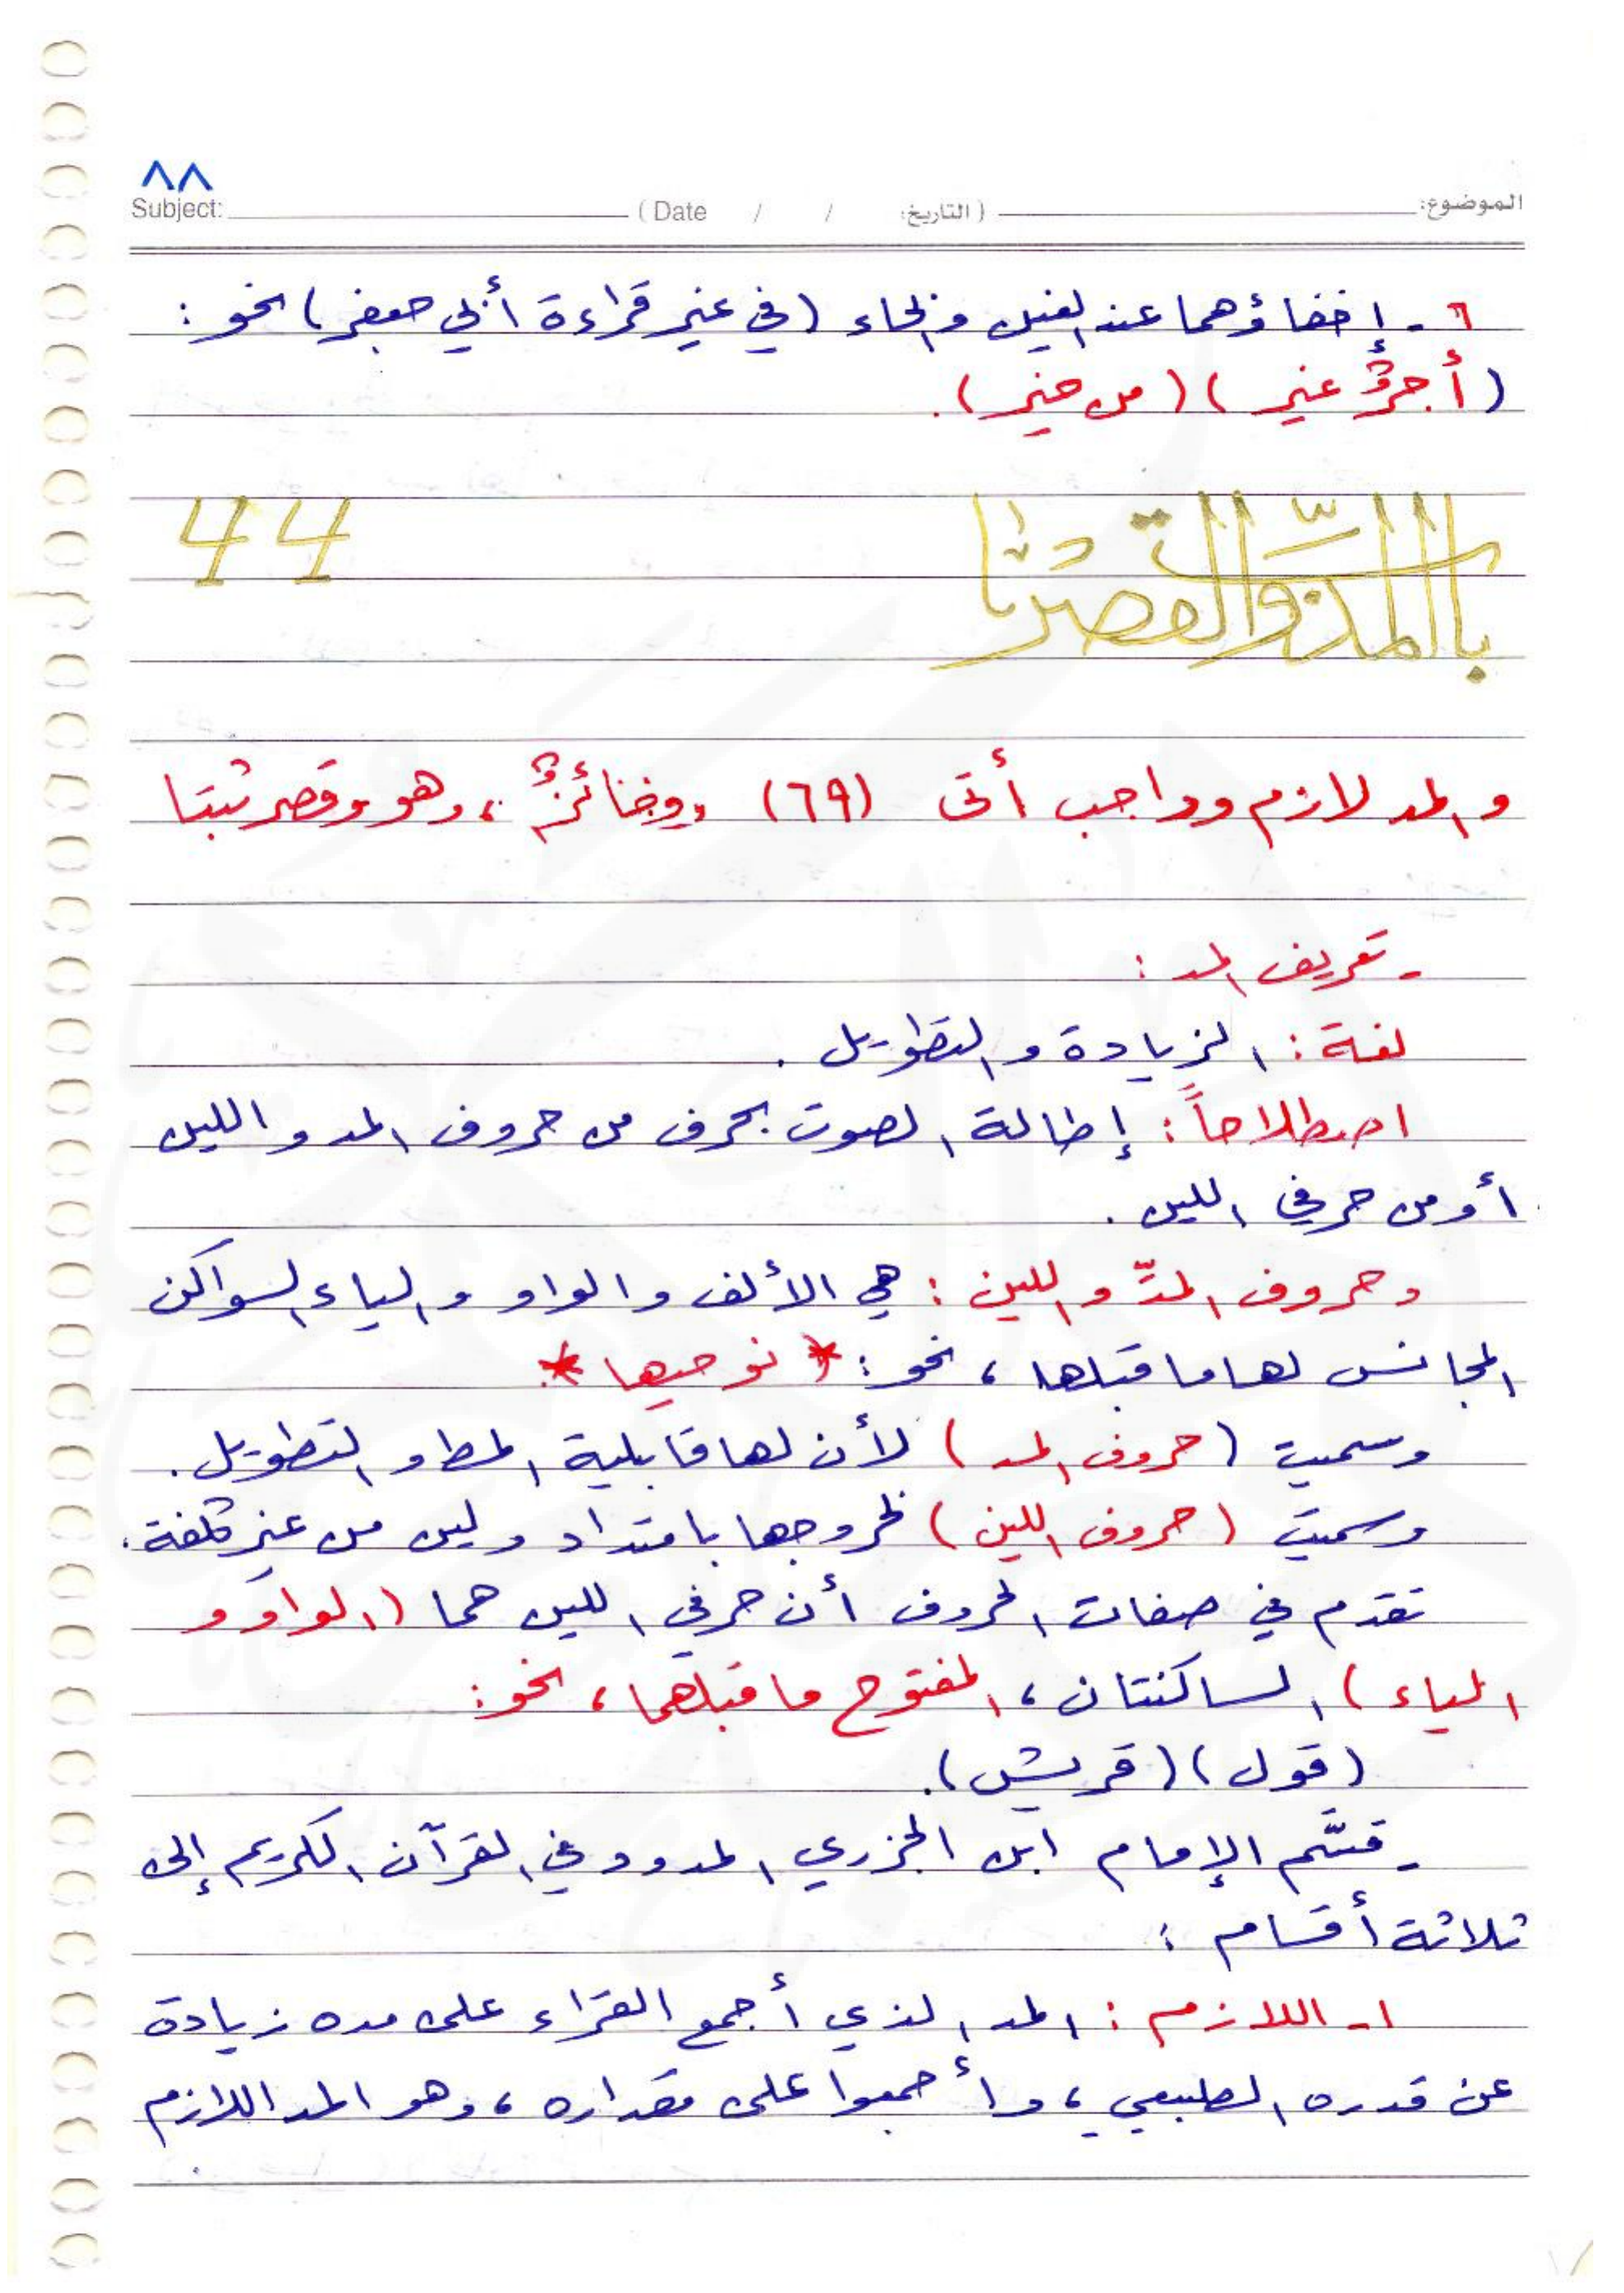 ٨٨
Subject: (Date / / التاريخ) الموضوع:
٦ - إخفاؤهما عند الغين والخاء (في غير قراءة أبي جعفر) نحو:
(أجرٌ غير) (من خير).
44
والمد لازم وواجب أتى (٦٩) وجائزٌ، وهو وقصر ثبتا
- تعريف المد:
لغة: الزيادة والتطويل.
اصطلاحاً: إطالة الصوت بحرف من حروف المد واللين
أو من حرفي اللين.
وحروف المدّ واللين: هي الألف والواو والياء السواكن
المجانس لها ما قبلها، نحو: * نوحيها *
وسميت (حروف المد) لأن لها قابلية المط والتطويل.
وسميت (حروف اللين) لخروجها بامتداد ولين من غير كلفة.
تقدم في صفات الحروف أن حرفي اللين هما (الواو و
الياء) الساكنتان، المفتوح ما قبلهما، نحو:
(قول) (قريش).
- قسّم الإمام ابن الجزري المدود في القرآن الكريم إلى
ثلاثة أقسام:
١- اللازم: المد الذي أجمع القرّاء على مده زيادة
عن قدره الطبيعي، وأجمعوا على مقداره، وهو المد اللازم